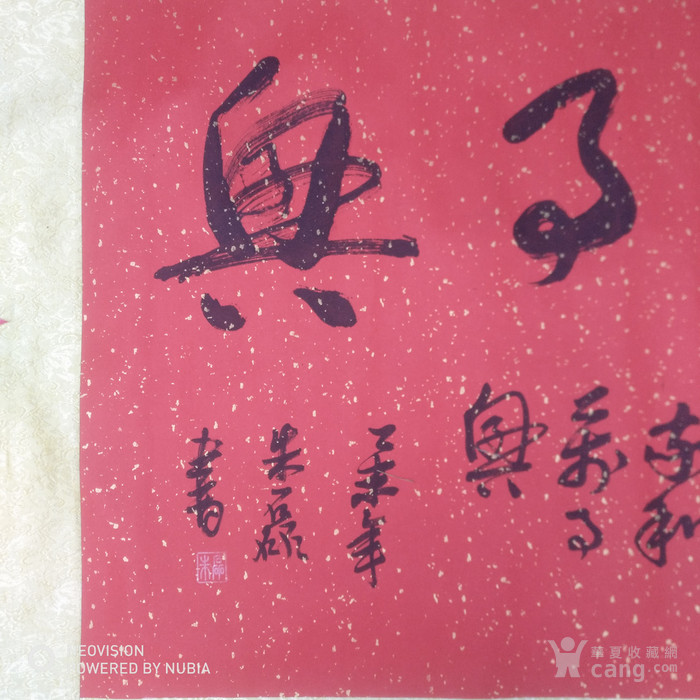 事興
家和
萬事
興
年
朱磊
書
EOVISION
OWERED BY NUBIA
華夏收藏網
cang.com